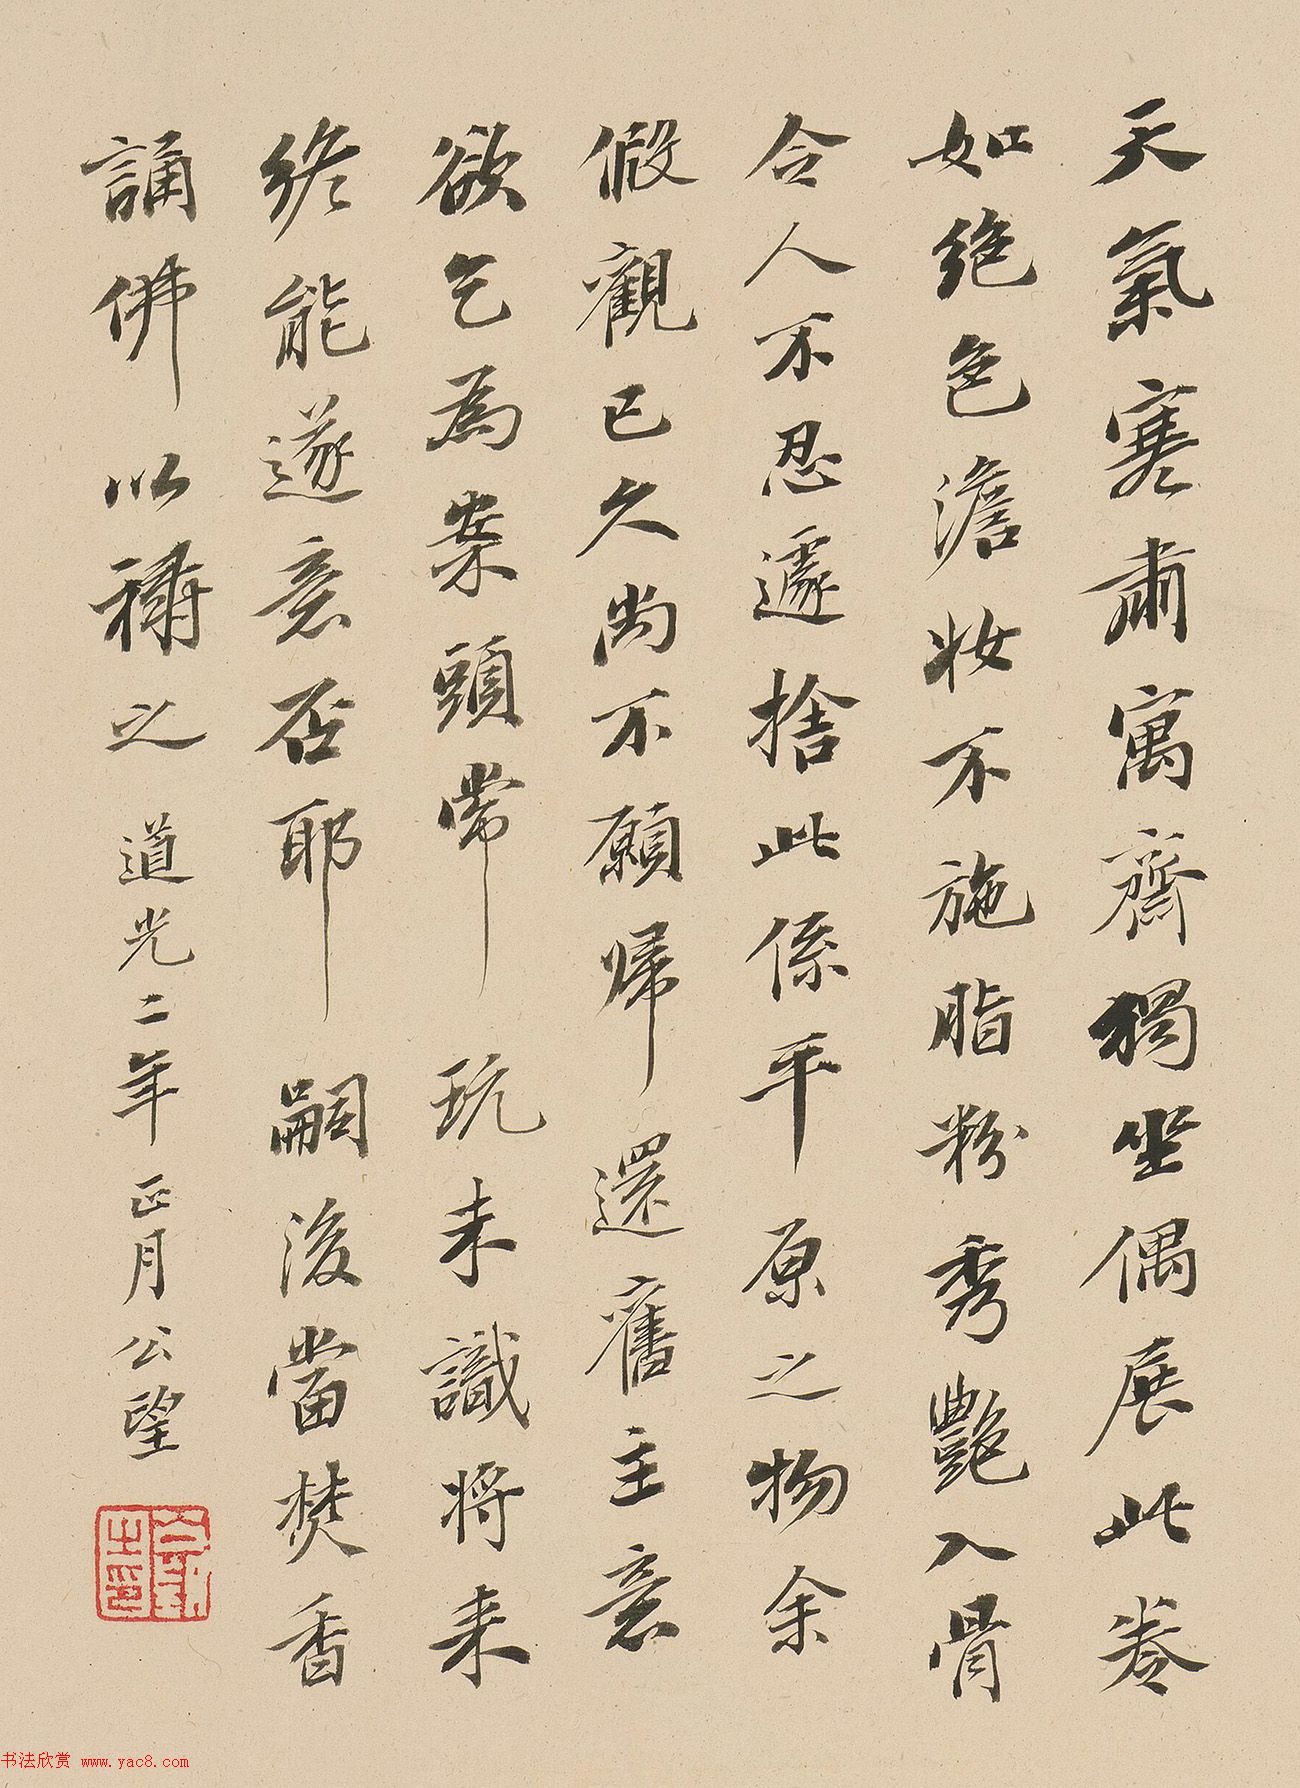 天氣寒肅寓齋獨坐偶展此卷
如絕色澹妝不施脂粉秀艷入骨
令人不忍遽捨此係平原之物余
假觀已久尚不願歸還舊主意
欲乞為案頭常玩未識將來
終能遂意否耶嗣後當焚香
誦佛以禱之 道光二年正月公望
书法欣赏 www.yac8.com